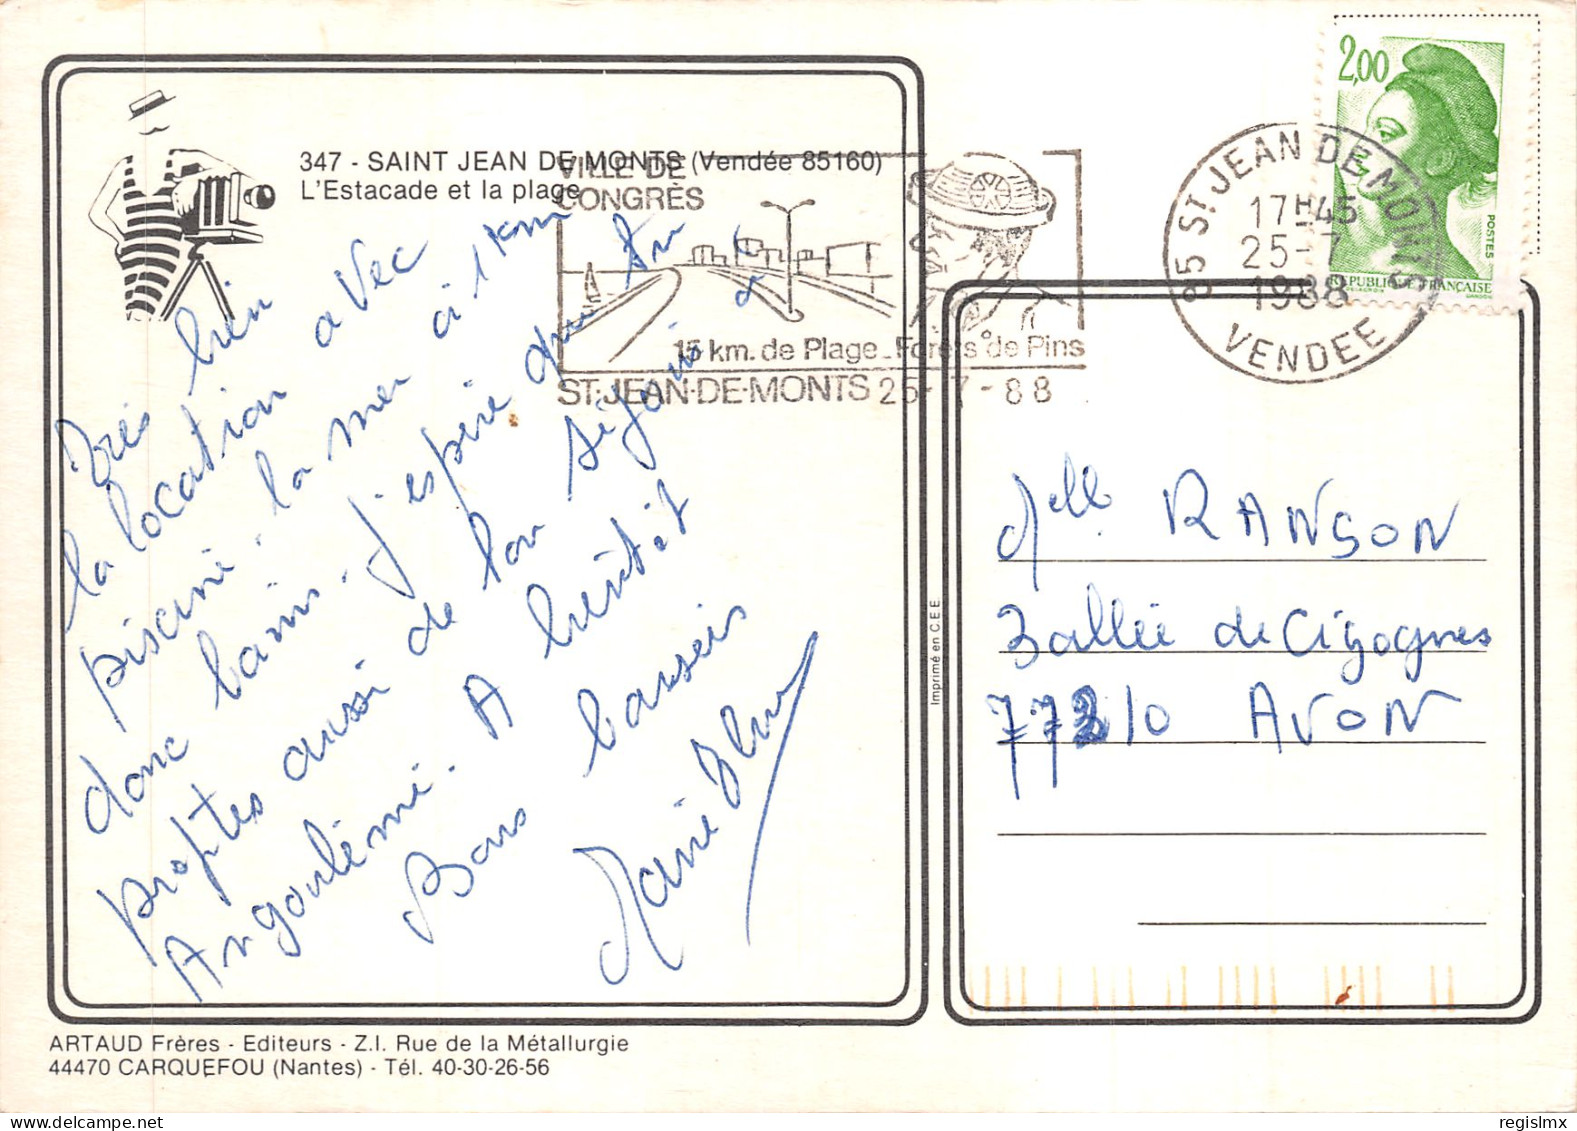 347 - SAINT JEAN DE MONTS (Vendée 85160)
L'Estacade et la plage
VILLE DE
CONGRÈS
15 km. de Plage_Forêts de Pins
ST.JEAN-DE-MONTS 25-7-88
85 ST JEAN DE MONTS
17H45
25-7
1988
VENDEE
2,00
POSTES
RÉPUBLIQUE FRANÇAISE
DELACROIX
GANDON
Très bien
la location avec
piscine. la mer à 1 km
donc bains. J'espère que tu
proptes aussi de ton séjour à
Angoulème. A bientôt
Bons baisers
Marie
Melle RANSON
3 allée de Cigognes
77210 AVON
Imprimé en C.E.E.
ARTAUD Frères - Editeurs - Z.I. Rue de la Métallurgie
44470 CARQUEFOU (Nantes) - Tél. 40-30-26-56
regislmx